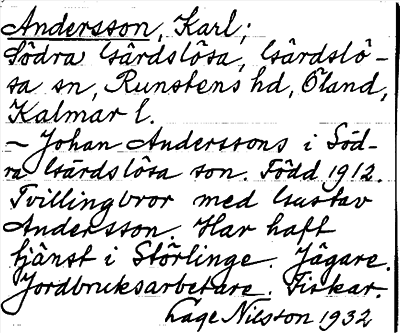 Andersson, Karl;
Södra Gärdslösa, Gärdslö-
sa sn, Runstens hd, Öland,
Kalmar l.
~ Johan Anderssons i Söd-
ra Gärdslösa son. Född 1912.
Tvillingbror med Gustav
Andersson. Har haft
tjänst i Störlinge. Jägare.
Jordbruksarbetare. Fiskar.
Lage Nilsson 1932